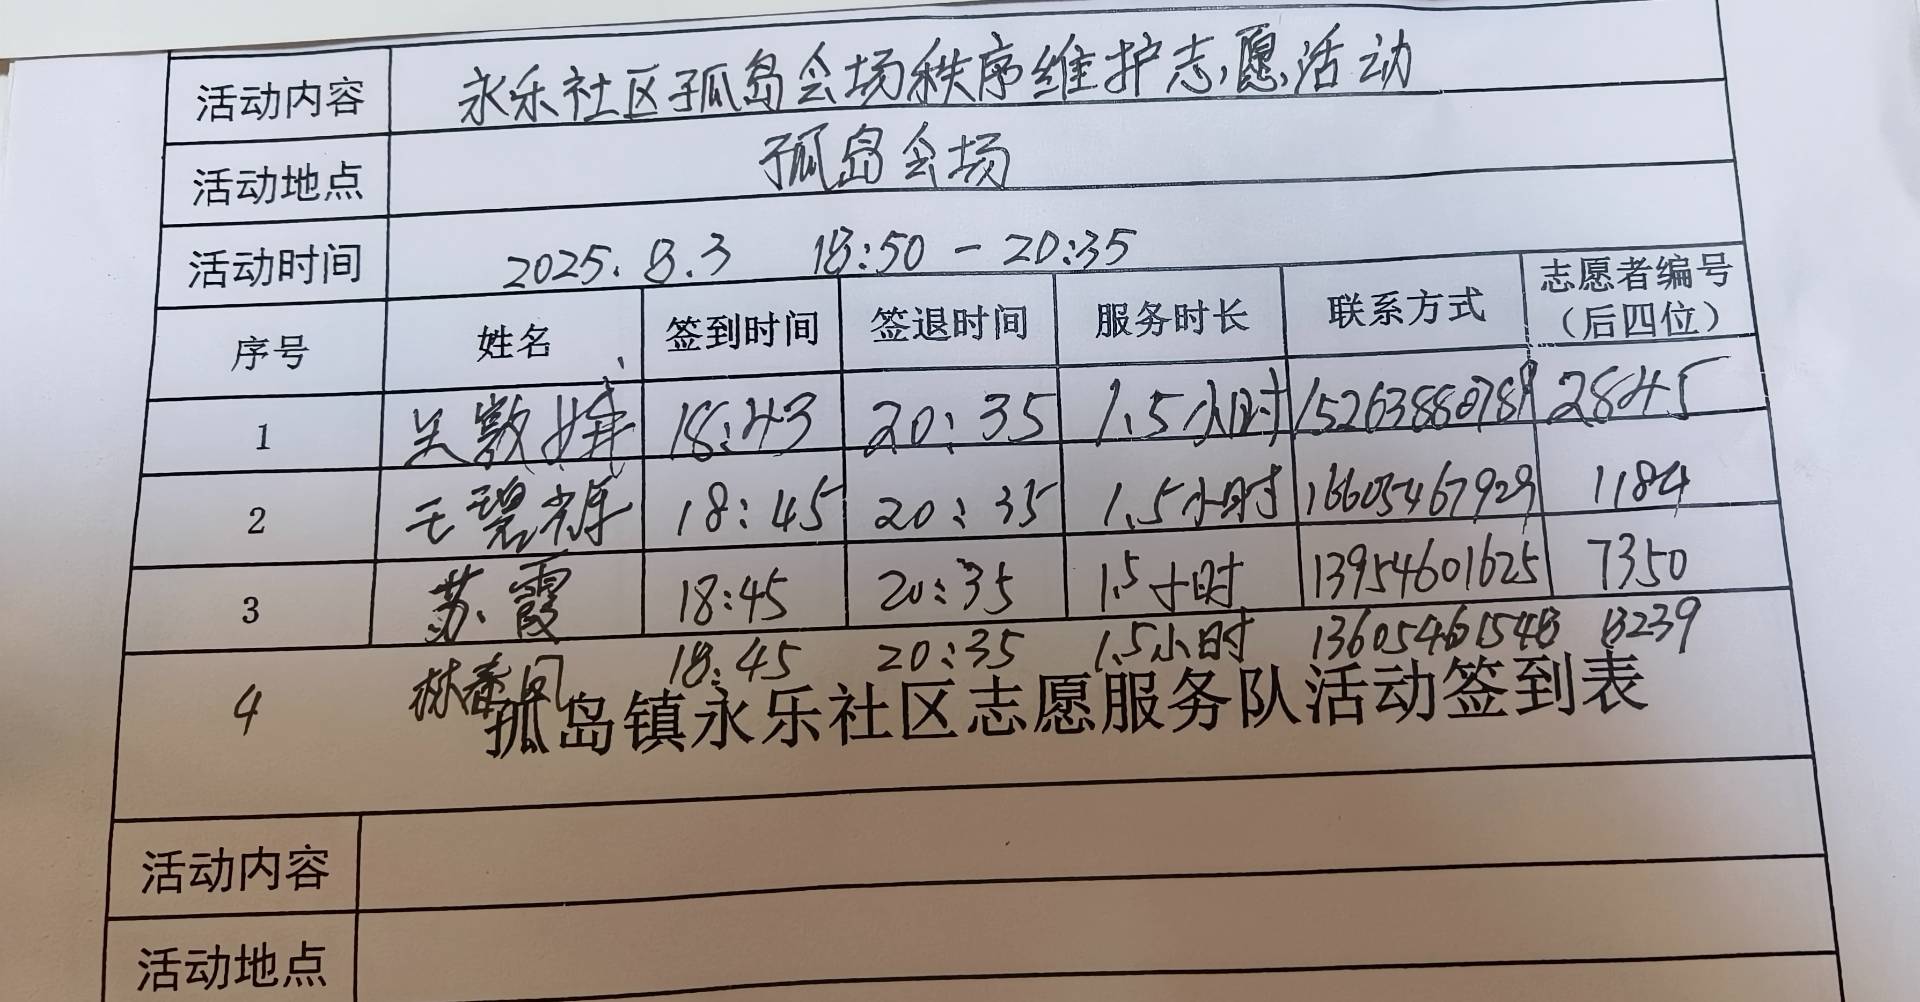 活动内容 永乐社区孤岛会场秩序维护志愿活动
活动地点 孤岛会场
活动时间 2025.8.3 18:50-20:35
序号 姓名 签到时间 签退时间 服务时长 联系方式 志愿者编号（后四位）
1 18:43 20:35 1.5小时 2845
2 18:45 20:35 1.5小时 16605467929 1184
3 苏霞 18:45 20:35 1.5小时 13954601625 7350
4 林春凤 18:45 20:35 1.5小时 3239
孤岛镇永乐社区志愿服务队活动签到表
活动内容
活动地点